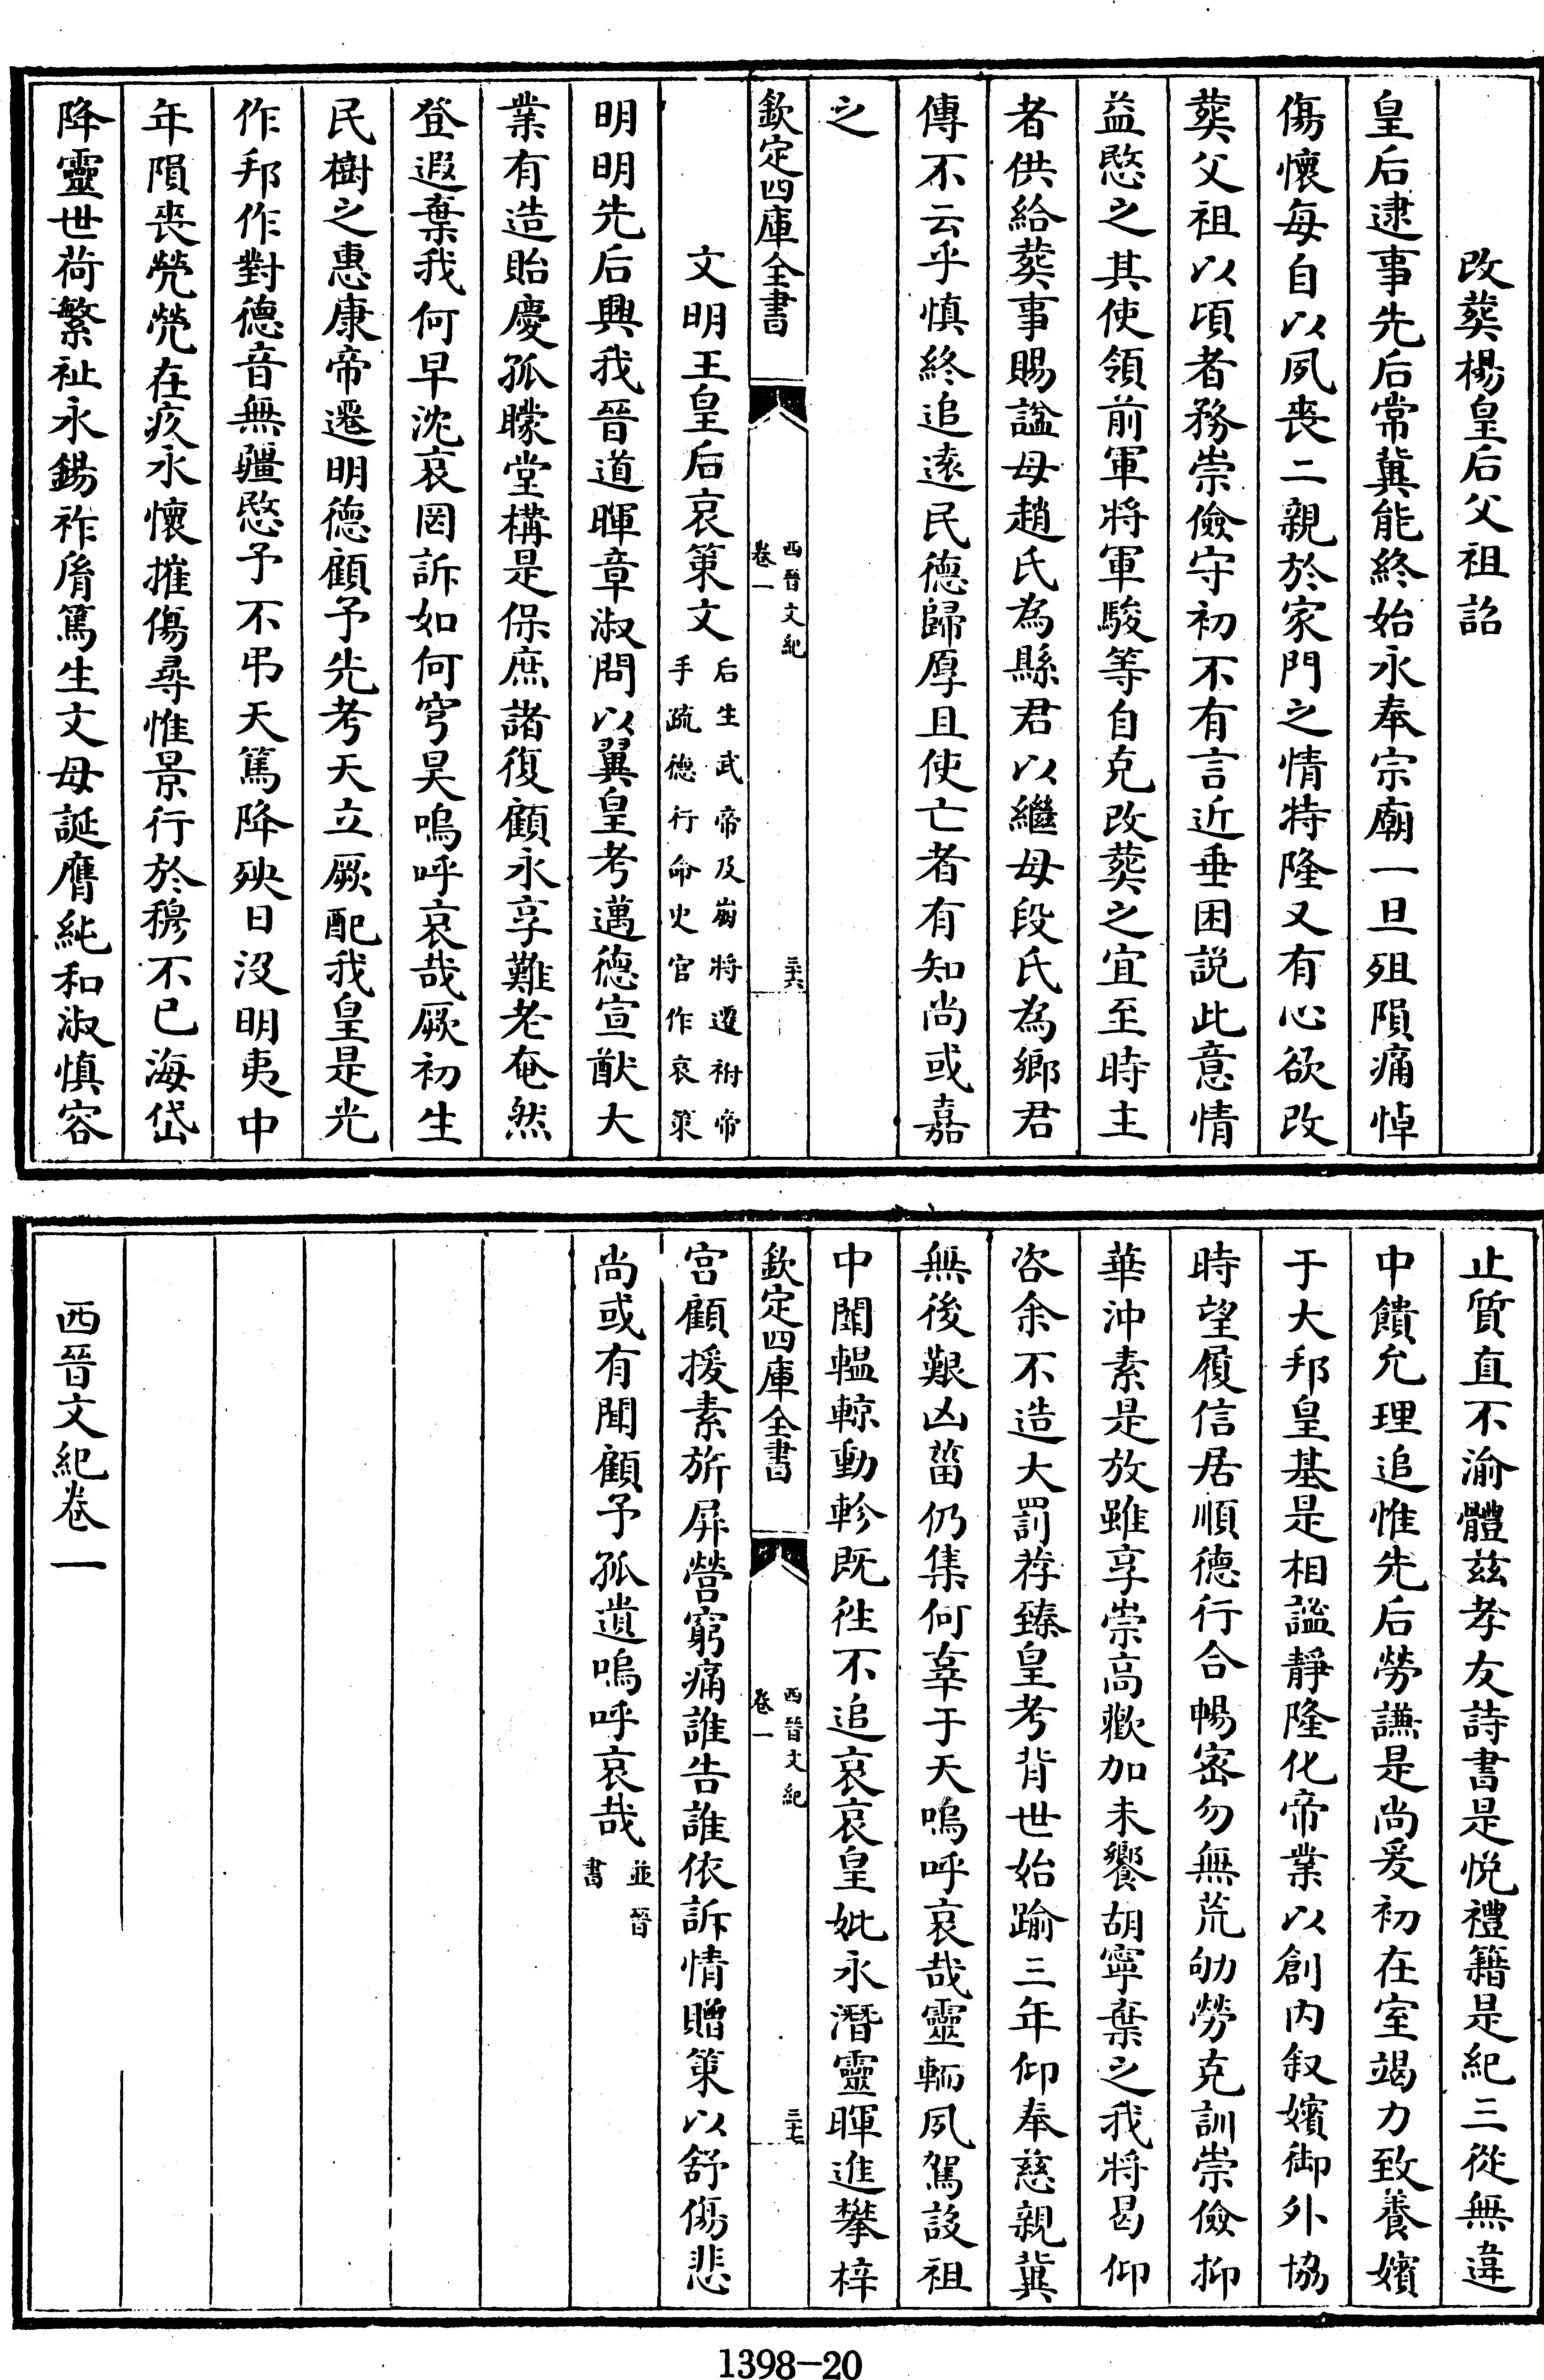 改葬楊皇后父祖詔
皇后逮事先后常冀能終始永奉宗廟一旦殂隕痛悼
傷懷每自以夙喪二親於家門之情特隆又有心欲改
葬父祖以頃者務崇儉守初不有言近垂困説此意情
益愍之其使領前軍將軍駿等自克改葬之宜至時主
者供給葬事賜諡母趙氏為縣君以繼母段氏為鄉君
傳不云乎慎終追逺民德歸厚且使亡者有知尚或嘉
之
欽定四庫全書
西晉文紀
卷一
三十六
文明王皇后哀策文
后生武帝及崩將遷祔帝
手疏德行命史官作哀策
明明先后興我晉道暉章淑問以翼皇考邁德宣猷大
業有造貽慶孤矇堂構是保庶諸復顧永享難老奄然
登遐棄我何早沈哀罔訴如何穹昊嗚呼哀哉厥初生
民樹之惠康帝遷明德顧予先考天立厥配我皇是光
作邦作對德音無疆愍予不弔天篤降殃日沒明夷中
年隕喪煢煢在疚永懷摧傷尋惟景行於穆不已海岱
降靈世荷繁祉永錫祚胤篤生文母誕膺純和淑慎容
止質直不渝體茲孝友詩書是悅禮籍是紀三從無違
中饋允理追惟先后勞謙是尚爰初在室竭力致養嬪
于大邦皇基是相謐靜隆化帝業以創内叙嬪御外協
時望履信居順德行合暢密勿無荒劬勞克訓崇儉抑
華沖素是放雖享崇高歡加未饗胡寧棄之我將曷仰
咨余不造大罰荐臻皇考背世始踰三年仰奉慈親冀
無後艱凶菑仍集何辜于天嗚呼哀哉靈輀夙駕設祖
中闈轀輬動軫既徃不追哀哀皇妣永潛靈暉進攀梓
欽定四庫全書
西晉文紀
卷一
三十七
宫顧援素旂屏營窮痛誰告誰依訴情贈策以舒傷悲
尚或有聞顧予孤遺嗚呼哀哉
並晉
書
西晉文紀卷一
1398-20